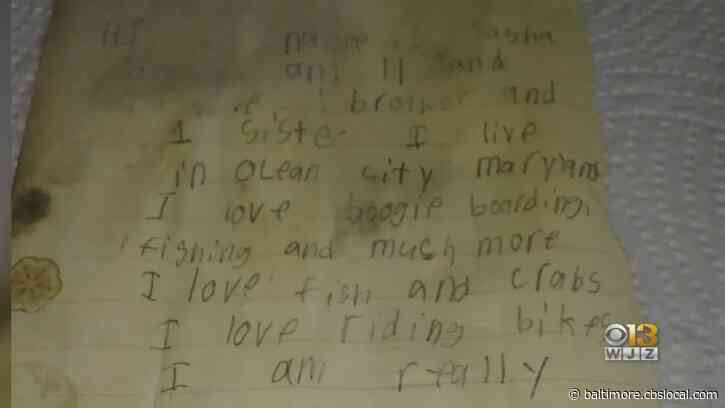 Hi name Sasha
am 11 and
brother and
1 Sister I live
in Ocean city maryland
I love boogie boarding,
fishing and much more
I love fish and crabs
I love riding bikes
I am really
CBS 13
WJZ
baltimore.cbslocal.com